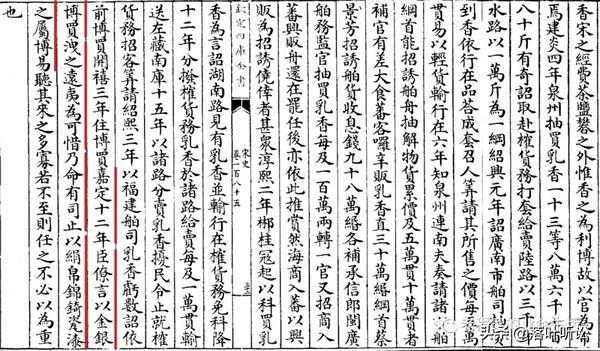 香宋之經費茶鹽礬之外惟香之為利博故以官為市
焉建炎四年泉州抽買乳香一十三等八萬六千七百
八十斤有奇詔取赴榷貨務打套給賣陸路以三千斤
水路以一萬斤為一綱紹興元年詔廣南市舶司抽買
到香依行在品答成套召人筭請其所售之價每五萬
貫易以輕貨輸行在六年知泉州連南夫奏請諸市舶
綱首能招誘舶舟抽解物貨累價及五萬貫十萬貫者
補官有差大食蕃客囉辛販乳香直三十萬緡綱首蔡
景芳招誘舶貨收息錢九十八萬緡各補承信郎閩廣
舶務監官抽買乳香每及一百萬兩轉一官又招商入
蕃興販舟還在罷任後亦依此推賞然海商入蕃以興
欽定四庫全書
宋史
卷一百八十五
販為招誘僥倖者甚衆淳熙二年郴桂寇起以科買乳
香為言詔湖南路見有乳香並輸行在榷貨務免科降
十二年分撥榷貨務乳香於諸路給賣每及一萬貫輸
送左藏南庫十五年以諸路分賣乳香擾民令止就榷
貨務招客筭請紹熙三年以福建舶司乳香虧數詔依
前博買開禧三年住博買嘉定十二年臣僚言以金銀
博買洩之遠夷為可惜乃命有司止以絹帛錦綺瓷漆
之屬博易聽其來之多寡若不至則任之不必以為重
也
头条@落叶听松